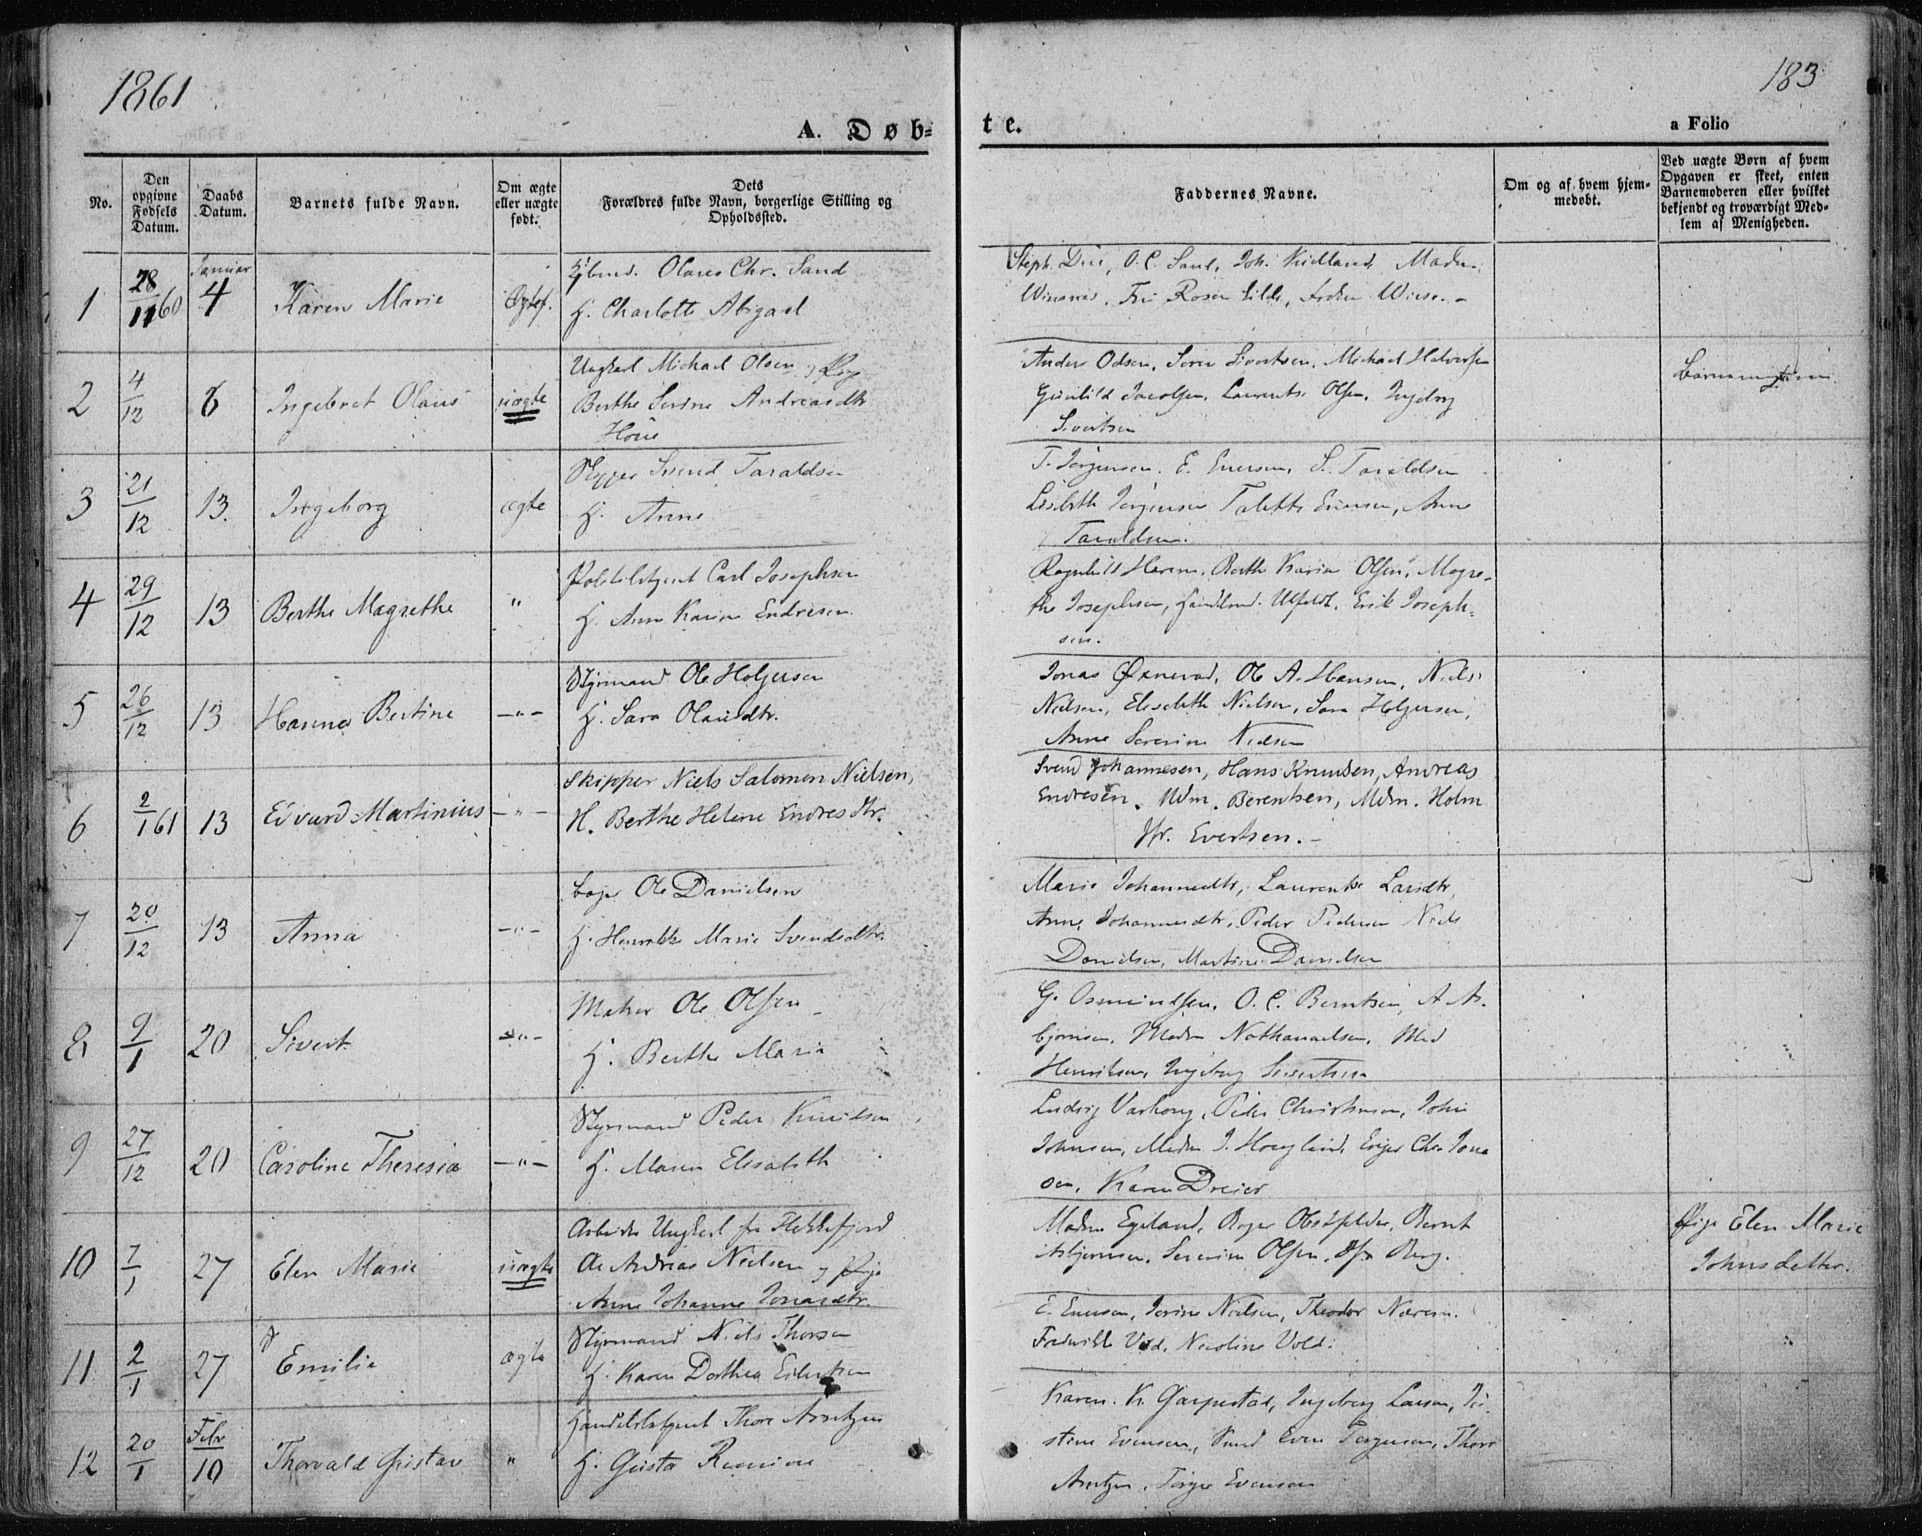 1861
183
A. Døb-
te.
a Folio
No.
Den opgivne Fødsels Datum.
Daabs Datum.
Barnets fulde Navn.
Om ægte eller uægte født.
Dets Forældres fulde Navn, borgerlige Stilling og Opholdssted.
Faddernes Navne.
Om og af hvem hjemmedøbt.
Ved uægte Børn af hvem Opgaven er skeet, enten Barnemoderen eller hvilket bekjendt og troværdigt Medlem af Menigheden.
1 28/11 60 Januar 4 Karen Marie Ægtef.
Olaus Chr. Sand
H. Charlotte Abigael
O. C. Sand, Joh. Kielland, Madm.
2 4/12 6 Ingebret Olaus uægte
Ungkarl Michael Olsen og Pige
Berthe Serine Andreasdtr
Anders Odsen, Soren Sivertsen, Michael Halvorsen
Gunhild Jacobsen, Laurentse Olsen, Ingeborg
Sivertsen
3 21/12 13. Ingeborg ægte
Svend Taraldsen
H. Anne
T. Jørgensen. E. Enersen, S. Taraldsen
Lisbeth Jørgensen Enersen, Anne
Taraldsen.
4 29/12 13 Berthe Magrethe "
Carl Josephsen
H. Ann Karine Endresen
Berthe Karine Olsen, Magre-
the Josephsen, Erik Joseph-
sen.
5 26/12 13 Hanna Bertine -"-
Styrmand Ole Holgersen
H. Sara Olausdtr.
Jonas Øxnevad, Ole A. Hansen, Niels
Nielsen, Elisabeth Nielsen, Sara Holgersen,
Anne Severine Nielsen
6 2/1 61 13 Edvard Martinius -"-
Skipper Niels Salomon Nielsen,
H. Berthe Helene Endresdtr.
Svend Johannesen, Hans Knudsen, Andreas
Endresen, Mdm. Berentsen, Mdm. Holm
Jfr. Evertsen. -
7 20/12 13 Anna -"-
Ole Danielsen
H. Marie Svendsdtr.
Marie Johannesdtr, Laurentse Larsdtr,
Anne Johannesdtr, Peder Pedersen Niels
Danielsen, Martine Danielsen
8 9/1 20 Sivert -"-
Ole Olsen
H. Berthe Maria
G. Osmundsen, O. C. Berntsen, A. As-
bjørnsen, Madm Nathanaelsen, Mad
Henriksen, Ingeborg Sivertsen
9 27/12 20 Caroline Theresia -"-
Styrmand Peder Knudsen
H. Maren Elisabeth
Ludvig Peder Christensen, John
Johnsen, Madm J. Houglund, Chr. Jona
sen, Karen Dreier
10 7/1 27 Elen Marie uægte
Ungkarl fra Flekkefjord
Andreas Nielsen og Pige
Anne Johanne Jonasdtr.
Madm Egeland, Roger Obstfelder, Bernt
Asbjørnsen, Severine Olsen, Jfr Berg.
Pige Elen Marie
Johnsdatter.
11 2/1 27 Emilie ægte
Styrmand Niels Thorsen
H. Karen Dorthea Eilertsen
E. Enersen, Nielsen, Theodor
Fredrikke Vold, Nicoline Vold.
12 20/1 Febr 10 Thorvald Gustav "
Thore Arntzen
H. Gusta
Karen K. Garpestad, Ingeborg Larsen, Ki-
stine Evensen, Knud Even Torgersen, Thore
Arntzen, Torger Evensen